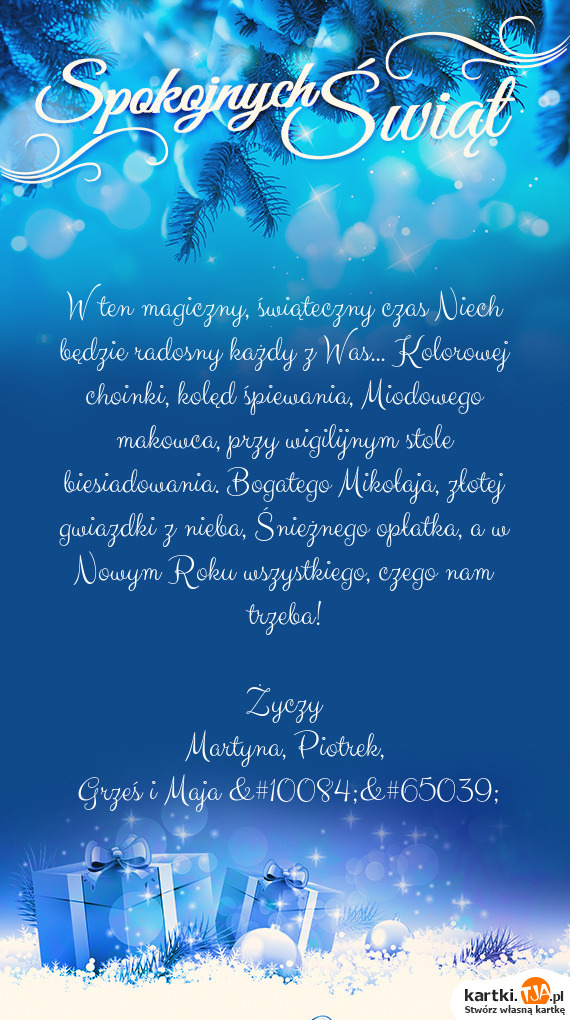 Spokojnych Świąt
W ten magiczny, świąteczny czas Niech
będzie radosny każdy z Was... Kolorowej
choinki, kolęd śpiewania, Miodowego
makowca, przy wigilijnym stole
biesiadowania. Bogatego Mikołaja, złotej
gwiazdki z nieba, Śnieżnego opłatka, a w
Nowym Roku wszystkiego, czego nam
trzeba!
Życzy
Martyna, Piotrek,
Grześ i Maja &#10084;&#65039;
kartki.TJA.pl
Stwórz własną kartkę